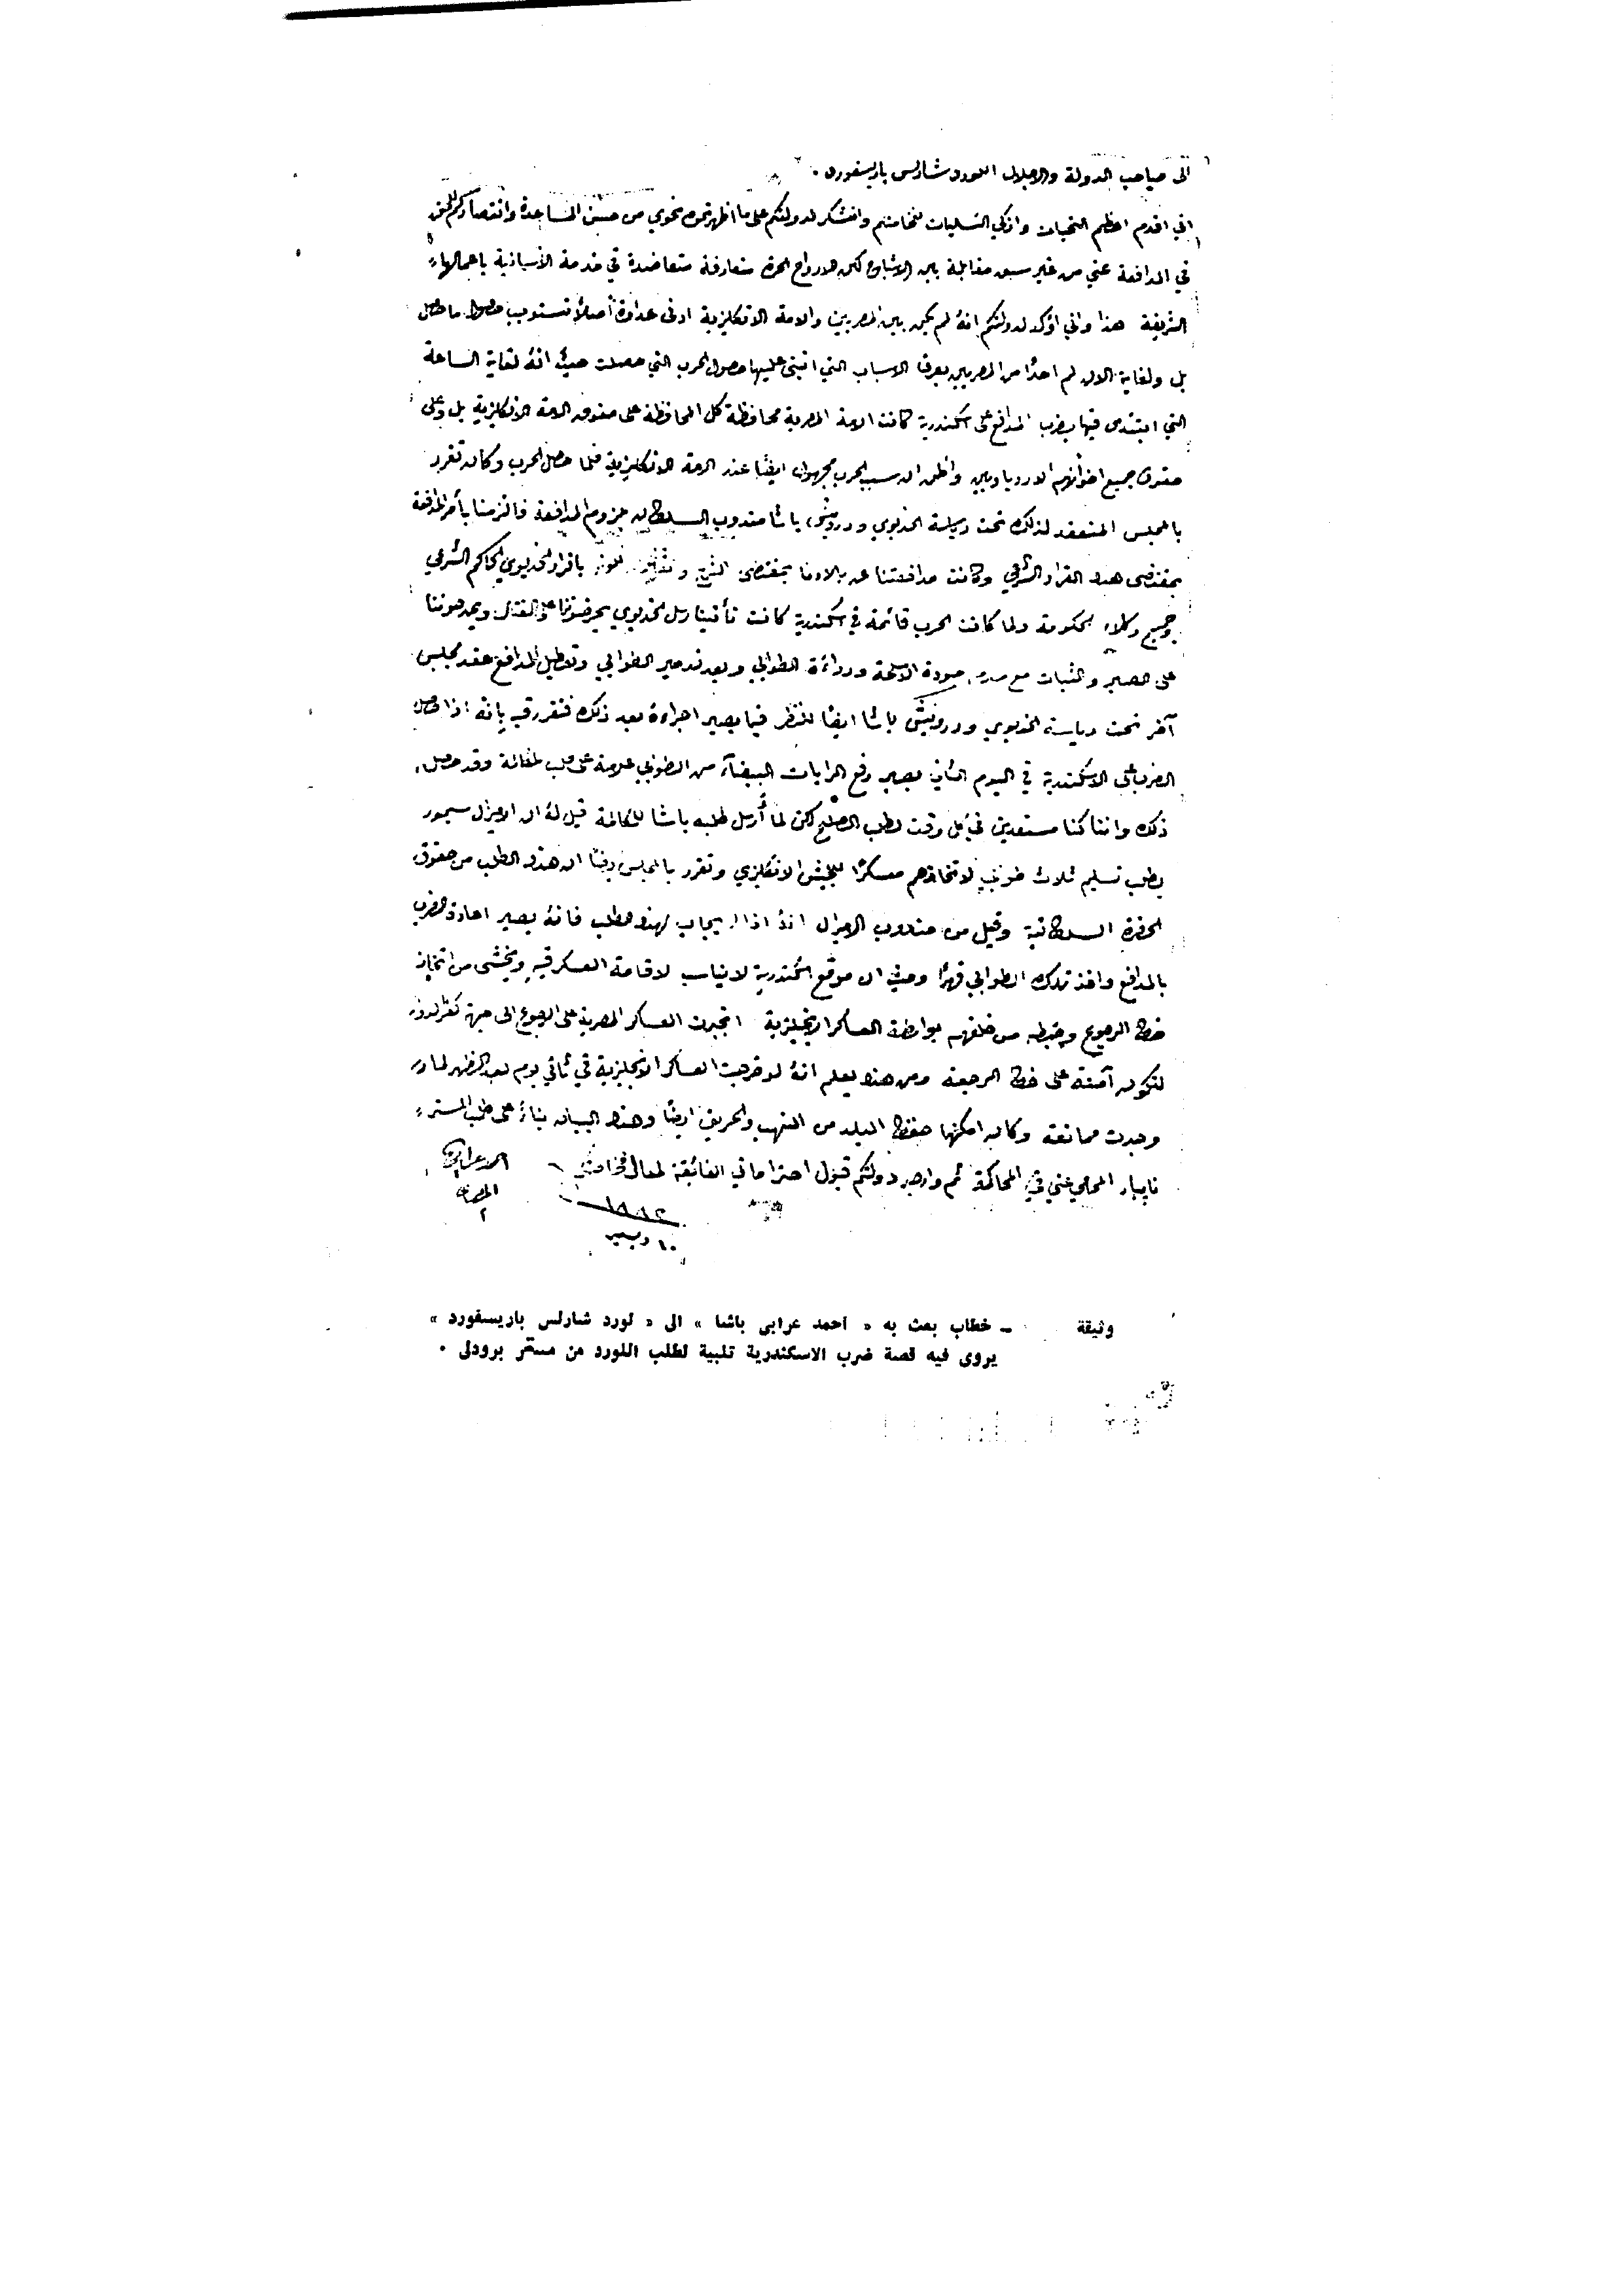 الى صاحب الدولة والاجلال اللورد شارلس باريسفورد .
اني اقدم اعظم التحيات وازكي التسليمات لفخامتكم واتشكر لدولتكم على ما اظهرتموه نحوي من حسن المساعدة وانتصاركم للحق
في المدافعة عني من غير سبق مقابلة بين الاشباح لكن الارواح الحرة متعارفة متعاضدة في خدمة الأنسانية باعمالها
الشريفة هذا واني اؤكد لدولتكم انهُ لم يكن بين المصريين والامة الانكليزية ادنى عداوة أصلاً تستوجب حصول ما حصل
بل ولغاية الان لم احدًا من المصريين يعرف الاسباب التي انبنى عليها حصول الحرب التي حصلت حيث انهُ لغاية الساعة
التي ابتدى فيها بضرب المدافع على اسكندرية كانت الامة المصرية محافظة كل المحافظة على حقوق الامة الانكليزية بل وعلى
حقوق جميع اخوانهم الاوروباويين وأظن ان سبب الحرب مجهول ايضًا عند الامة الانكليزية فلما حصل الحرب وكان تقرر
بالمجلس المنعقد لذلك تحت رياسة الخديوي ودرويش باشا مندوب السلطان بلزوم المدافعة فالتزمنا بأمر المدافعة
بمقتضى هذا القرار الشرعي وكانت مدافعتنا عن بلادنا بمقتضى الشرع و باقرار الخديوي الحاكم الشرعي
وجميع وكلاء الحكومة ولما كانت الحرب قائمة في اسكندرية كانت تأتينا رسل الخديوي يحرضوننا على القتال ويمدحوننا
على الصبر والثبات مع جودة الاسلحة ورداءة الطوابي وبعد تدمير الطوابي وتعطيل المدافع عقد مجلس
آخر تحت رياسة الخديوي ودرويش باشا ايضًا للنظر فيما يصير اجراءهُ بعد ذلك فتقرر فيه بانه اذا حصل
الضرب على الاسكندرية في اليوم الثاني يصير رفع الرايات البيضاء من الطوبي علامة على طلب المخابرة وقد حصل
ذلك واننا كنا مستعدين في كل وقت لطلب الصلح لكن لما أرسل طلبه باشا للمكالمة قيل لهُ ان الاميرال سيمور
يطلب تسليم ثلاث طوابي لاتخاذهم معسكرًا للجيش الانكليزي وتقرر بالمجلس ايضًا ان هذا الطلب من حقوق
الحضرة السلطانية وقيل من مندوب الاميرال انهُ اذا لم يجاب لهذا الطلب فانهُ يصير اعادة الضرب
بالمدافع واخذ تلك الطوابي قهرًا وحيث ان موقع اسكندرية لا يناسب لاقامة العسكر فيه ويخشى من اتخاذ
خط الرجوع وضبطه من خلفهم بواسطة العساكر الانجليزية انجبرت العسكر المصرية على الرجوع الى جهة كفر الدوار
لتكون آمنة على خط الرجعة ومن هذا يعلم انهُ لو خرجت العساكر الانجليزية في ثاني يوم بعد الظهر لما
وجدت ممانعة وكان امكنها حفظ البلد من النهب والحريق ايضًا وهذا البيان بناءً على طلب المستر
نابيار المحامي عني في المحاكمة ثم وارجو دولتكم قبول احتراماتي الفائقة لمعالي فخامتكم
احمد عرابي
المصري
١٨٨٢
١٠ دسمبر
وثيقة – خطاب بعث به « احمد عرابى باشا » الى « لورد شارلس باريسفورد »
يروى فيه قصة ضرب الاسكندرية تلبية لطلب اللورد من مستر برودلى .